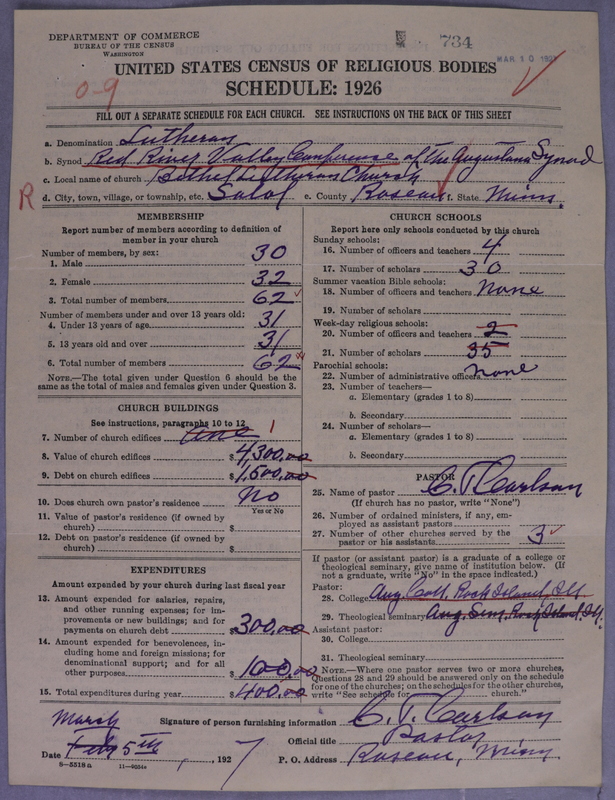 DEPARTMENT OF COMMERCE
BUREAU OF THE CENSUS
WASHINGTON
734
MAR 10 1927
UNITED STATES CENSUS OF RELIGIOUS BODIES
SCHEDULE: 1926
0-9
FILL OUT A SEPARATE SCHEDULE FOR EACH CHURCH. SEE INSTRUCTIONS ON THE BACK OF THIS SHEET
a. Denomination Lutheran
b. Synod Red River Valley Conference of the Augustana Synod
c. Local name of church Bethel Lutheran Church
R d. City, town, village, or township, etc. Salol e. County Roseau f. State Minn.
MEMBERSHIP
Report number of members according to definition of member in your church
Number of members, by sex:
1. Male 30
2. Female 32
3. Total number of members 62
Number of members under and over 13 years old:
4. Under 13 years of age 31
5. 13 years old and over 31
6. Total number of members 62
NOTE.—The total given under Question 6 should be the same as the total of males and females given under Question 3.
CHURCH BUILDINGS
See instructions, paragraphs 10 to 12
7. Number of church edifices one 1
8. Value of church edifices $4,300.00
9. Debt on church edifices $1,600.00
10. Does church own pastor's residence No
Yes or No
11. Value of pastor's residence (if owned by church) $
12. Debt on pastor's residence (if owned by church) $
EXPENDITURES
Amount expended by your church during last fiscal year
13. Amount expended for salaries, repairs, and other running expenses; for improvements or new buildings; and for payments on church debt $300.00
14. Amount expended for benevolences, including home and foreign missions; for denominational support; and for all other purposes $100.00
15. Total expenditures during year $400.00
CHURCH SCHOOLS
Report here only schools conducted by this church
Sunday schools:
16. Number of officers and teachers 4
17. Number of scholars 30
Summer vacation Bible schools:
18. Number of officers and teachers None
19. Number of scholars
Week-day religious schools:
20. Number of officers and teachers 2
21. Number of scholars 35
Parochial schools:
22. Number of administrative officers None
23. Number of teachers—
a. Elementary (grades 1 to 8)
b. Secondary
24. Number of scholars—
a. Elementary (grades 1 to 8)
b. Secondary
PASTOR
25. Name of pastor C. T. Carlson
(If church has no pastor, write "None")
26. Number of ordained ministers, if any, employed as assistant pastors
27. Number of other churches served by the pastor or his assistants 3
If pastor (or assistant pastor) is a graduate of a college or theological seminary, give name of institution below. (If not a graduate, write "No" in the space indicated.)
Pastor:
28. College Aug. Coll. Rock Island, Ill.
29. Theological seminary Aug. Sem. Rock Island, Ill.
Assistant pastor:
30. College
31. Theological seminary
NOTE.—Where one pastor serves two or more churches, Questions 28 and 29 should be answered only on the schedule for one of the churches; on the schedules for the other churches, write "See schedule for church."
Signature of person furnishing information C. T. Carlson
Official title Pastor
March
Date Feb 5th, 1927
P. O. Address Roseau, Minn.
8-5518a 11-9034a